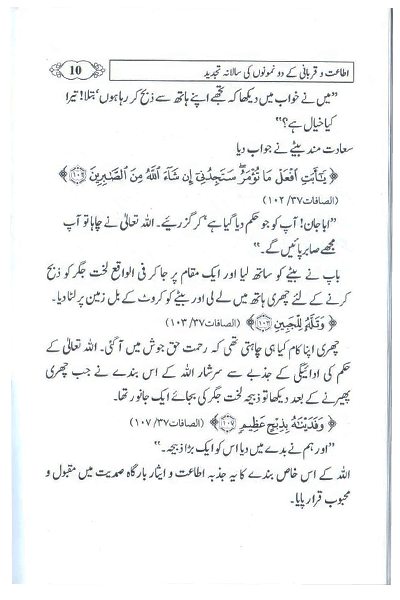 اطاعت و قربانی کے دو نمونوں کی سالانہ تجدید
10
”میں نے خواب میں دیکھا کہ تجھے اپنے ہاتھ سے ذبح کر رہا ہوں‘ بتلا! تیرا
کیا خیال ہے؟“
سعادت مند بیٹے نے جواب دیا
﴿ يَٰٓأَبَتِ ٱفۡعَلۡ مَا تُؤۡمَرُۖ سَتَجِدُنِيٓ إِن شَآءَ ٱللَّهُ مِنَ ٱلصَّٰبِرِينَ ١٠٢ ﴾
(الصافات۳۷/ ۱۰۲)
”ابا جان! آپ کو جو حکم دیا گیا ہے‘ کر گزریئے۔ اللہ تعالیٰ نے چاہا تو آپ
مجھے صابر پائیں گے۔“
باپ نے بیٹے کو ساتھ لیا اور ایک مقام پر جا کر فی الواقع لخت جگر کو ذبح
کرنے کے لئے چھری ہاتھ میں لے لی اور بیٹے کو کروٹ کے بل زمین پر لٹا دیا۔
﴿ وَتَلَّهُۥ لِلۡجَبِينِ ١٠٣ ﴾ (الصافات۳۷/ ۱۰۳)
چھری اپنا کام کیا ہی چاہتی تھی کہ رحمت حق جوش میں آ گئی۔ اللہ تعالیٰ کے
حکم کی ادائیگی کے جذبے سے سرشار اللہ کے اس بندے نے جب چھری
پھیرنے کے بعد دیکھا تو ذبیحہ لخت جگر کی بجائے ایک جانور تھا۔
﴿ وَفَدَيۡنَٰهُ بِذِبۡحٍ عَظِيمٖ ١٠٧ ﴾ (الصافات۳۷/ ۱۰۷)
”اور ہم نے بدے میں دیا اس کو ایک بڑا ذبیحہ۔“
اللہ کے اس خاص بندے کا یہ جذبہ اطاعت و ایثار بارگاہ صمدیت میں مقبول و
محبوب قرار پایا۔